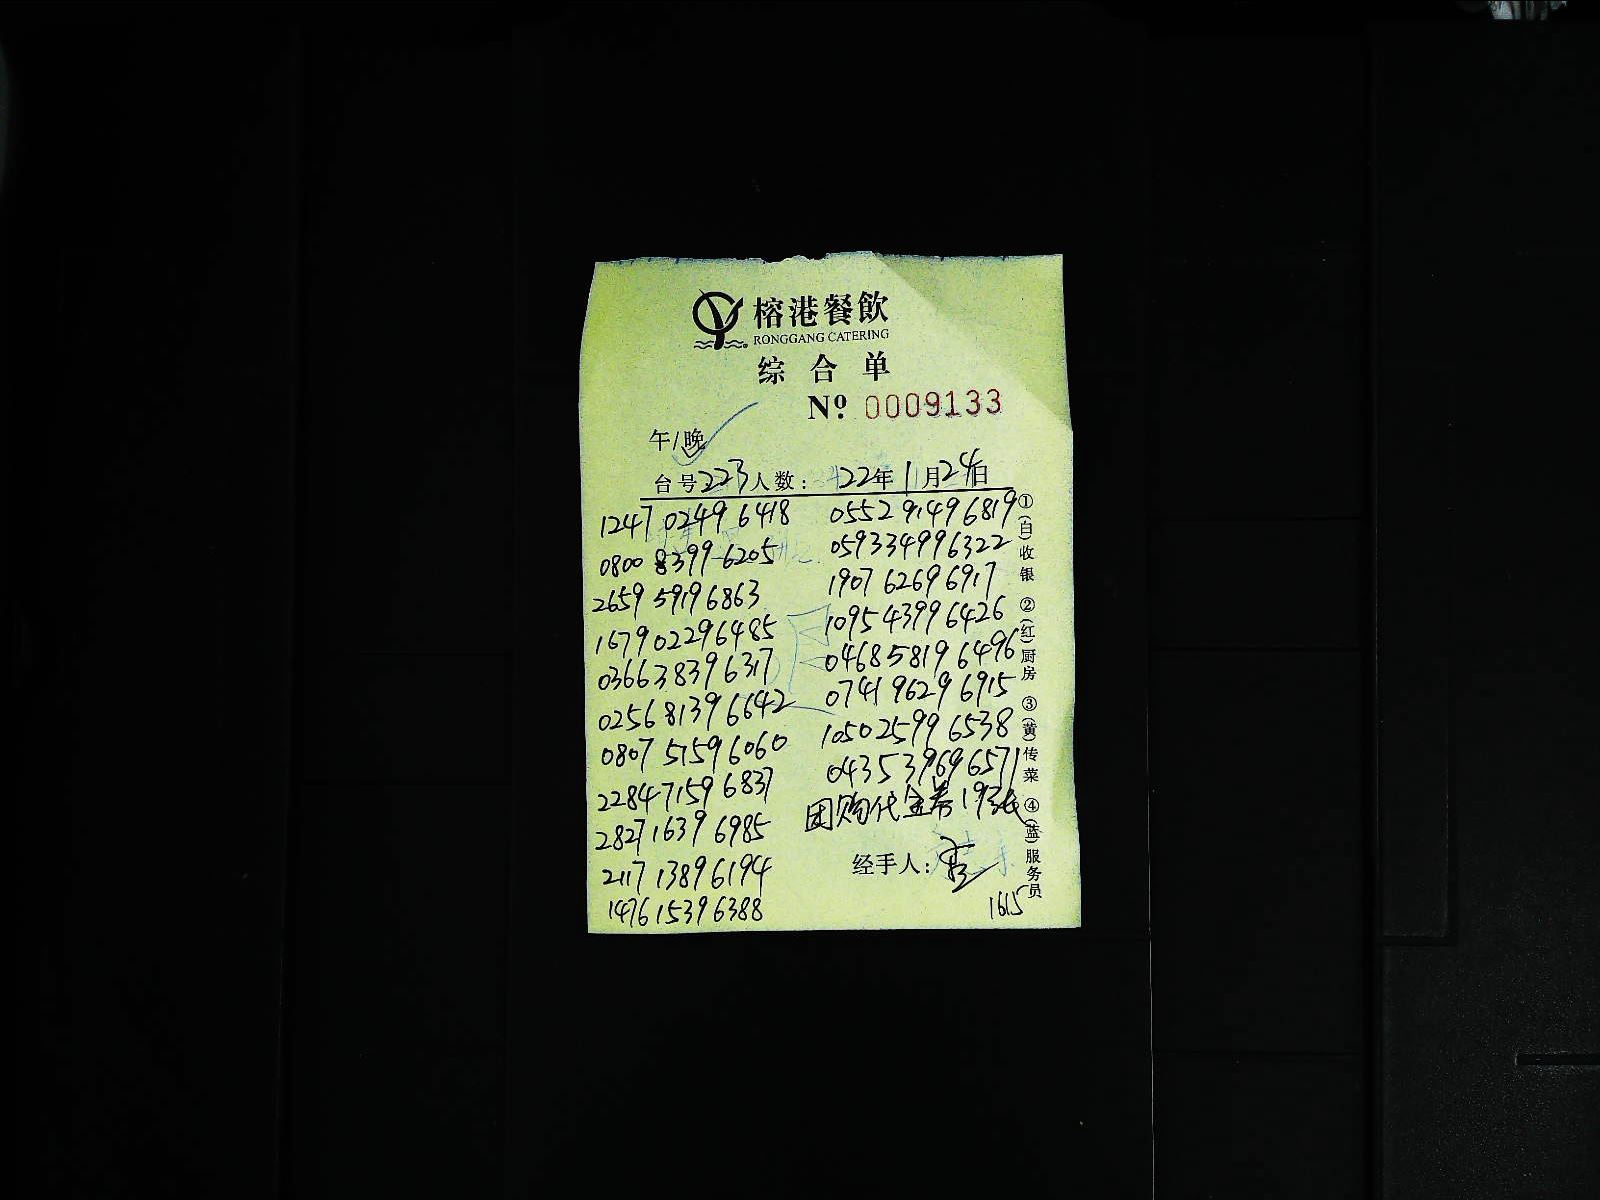 榕港餐飲
RONGGANG CATERING
综合单
Nº 0009133
午/晚
台号223人数: 22年11月24日
1247 0249 6418
0800 8399 6205
2659 5919 6863
1679 0229 6485
0366 3839 6317
0256 8139 6642
0807 5159 6060
2284 7159 6837
2827 1639 6985
2117 1389 6194
1476 1539 6388
0552 9149 6819
0593 3499 6322
1907 6269 6917
1095 4399 6426
0468 5819 6496
0741 9629 6915
1050 2599 6538
0435 3969 6571
团购代金券19张
经手人:
1615
①(白)收银 ②(红)厨房 ③(黄)传菜 ④(蓝)服务员